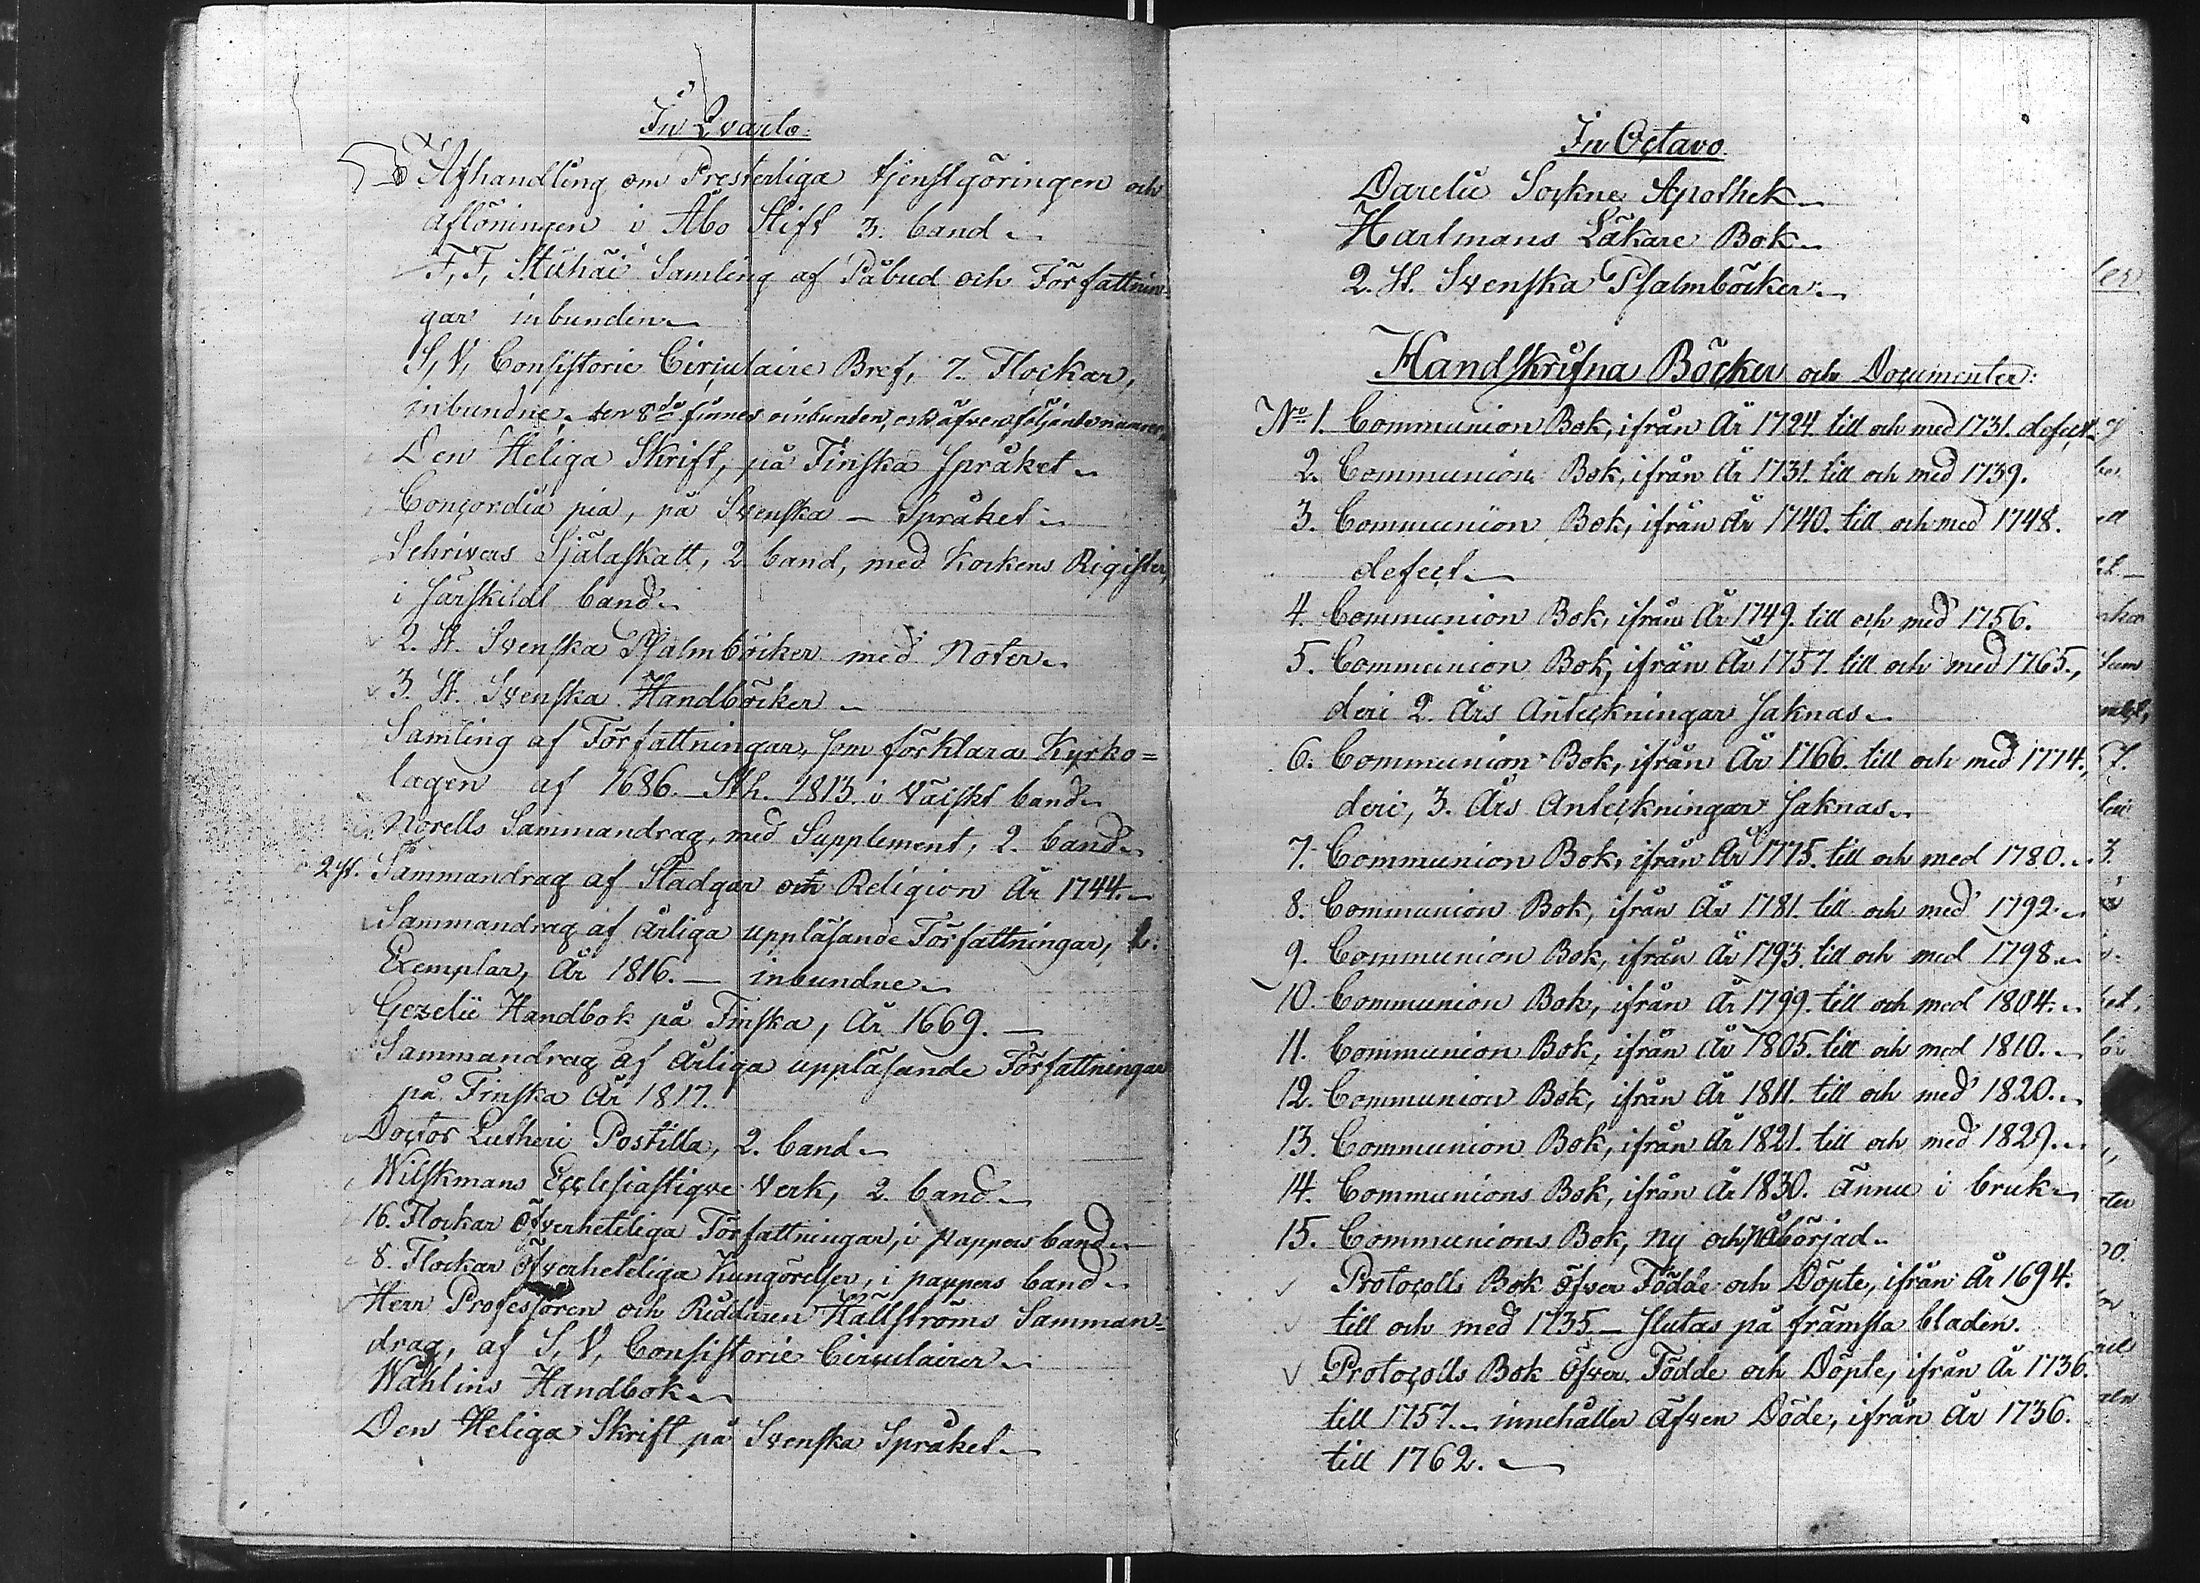 In Qvarto.
Afhandling om Presterliga tjenstgöringen och
aflöningen i Åbo Stift 3. band.
F, F, Stichæi Samling af Påbud och Författnin=
gar inbunden
S, V, Consistorie Circulaire Bref, 7. Flockar,
inbundne, den 8de finnes oinbunden, och äfven följande nummer,
Den Heliga Skrift, på Finska språket
Concordia pia, på Svenska - Språket
Schrivers Själaskatt, 2. band, med Kockens Rigister,
i särskildt band.
2. St. Svenska Psalmböcker med Noter
3. St. Svenska Handböcker
Samling af Författningar, som förklara Kyrko=
lagen af 1686. Sth. 1813. i Välskt band
Norells Sammandrag, med Supplement, 2. band
2 st. Sammandrag af Stadgar om Religion År 1744.
Sammandrag af Årliga uppläsande Författningar,
Exemplar, År 1816. — inbundne
Gezelii Handbok på Finska, År 1669. —
Sammandrag af årliga uppläsande Författningar
på Finska År 1817.
Doctor Lutheri Postilla, 2. band
Wilskmans Ecclesiastiqve Verk, 2. band
16. Flockar Öfverheteliga Författningar, i pappers band
8. Flockar Öfverheteliga Kungörelser, i pappers band
Herr Professoren och Riddaren Hällströms Samman=
drag, af S, V, Consistorie Circulairer
Wåhlins Handbok
Den Heliga Skrift på Svenska Språket
In Octavo.
Darelii Sockne Apothek
Hartmans Läkare Bok
2. St. Svenska Psalmböcker
Handskrifna Böcker och Documenter:
No 1. Communion Bok, ifrån År 1724. till och med 1731. defect
2. Communion Bok, ifrån År 1731. till och med 1739.
3. Communion Bok, ifrån År 1740. till och med 1748.
defect.
4. Communion Bok, ifrån År 1749. till och med 1756.
5. Communion Bok, ifrån År 1757. till och med 1765.,
deri 2. Års Anteckningar saknas.
6. Communion Bok, ifrån År 1766. till och med 1774.,
deri, 3. Års Anteckningar saknas.
7. Communion Bok, ifrån År 1775. till och med 1780.
8. Communion Bok, ifrån År 1781. till och med 1792.
9. Communion Bok, ifrån År 1793. till och med 1798.
10. Communion Bok, ifrån År 1799. till och med 1804.
11. Communion Bok, ifrån År 1805. till och med 1810.
12. Communion Bok, ifrån År 1811. till och med 1820.
13. Communion Bok, ifrån År 1821. till och med 1829.
14. Communions Bok, ifrån År 1830. ännu i bruk
15. Communions Bok, ny och påbörjad
Protocolls Bok öfver Födde och Döpte, ifrån År 1694.
till och med 1735. — slutas på främsta bladen.
Protocolls Bok öfver Födde och Döpte, ifrån År 1736.
till 1757. innehåller Äfven Döde, ifrån År 1736.
till 1762.